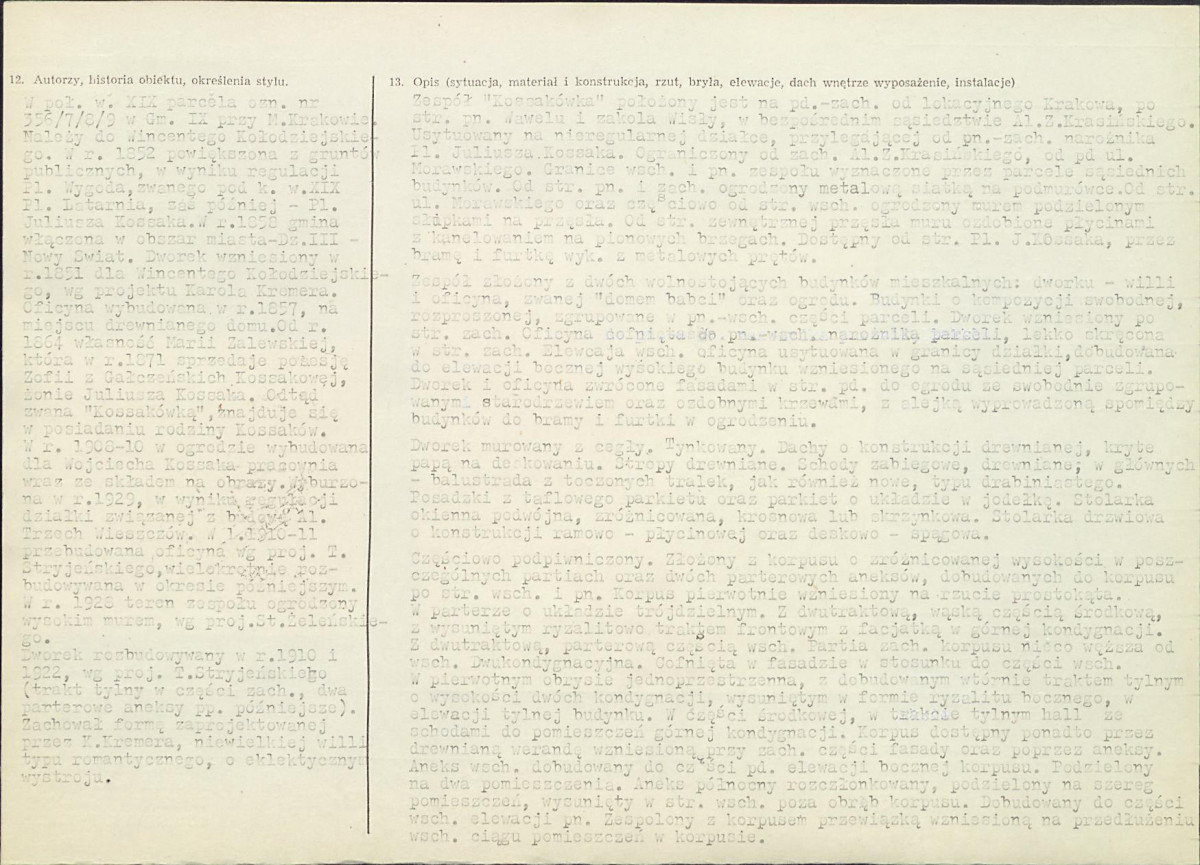 12. Autorzy, historia obiektu, określenia stylu.
W poł. w. XIX parcela ozn. nr
356/7/8/9 w Gm. IX przy M.Krakowie.
Należy do Wincentego Kołodziejskie-
go. W r. 1852 powiększona z gruntów
publicznych, w wyniku regulacji
Pl. Wygoda,zwanego pod k. w.XIX
Pl. Latarnia, zaś później - Pl.
Juliusza Kossaka.W r.1858 gmina
włączona w obszar miasta-Dz.III -
Nowy Świat. Dworek wzniesiony w
r.1851 dla Wincentego Kołodziejskie-
go, wg projektu Karola Kremera.
Oficyna wybudowana w r.1857, na
miejscu drewnianego domu.Od r.
1864 własność Marii Zalewskiej,
która w r.1871 sprzedaje posesję
Zofii z Gałczeńskich Kossakowej,
żonie Juliusza Kossaka. Odtąd
zwana "Kossakówką",znajduje się
w posiadaniu rodziny Kossaków.
W r. 1908-10 w ogrodzie wybudowana
dla Wojciecha Kossaka pracownia
wraz ze składem na obrazy.Wyburzo-
na w r.1929, w wyniku regulacji
działki związanej z budową Al.
Trzech Wieszczów. W l.1910-11
przebudowana oficyna wg proj. T.
Stryjeńskiego,wielokrotnie roz-
budowywana w okresie późniejszym.
W r. 1928 teren zespołu ogrodzony
wysokim murem, wg proj.St.Żeleńskie-
go.
Dworek rozbudowywany w r.1910 i
1922, wg proj. T.Stryjeńskiego
(trakt tylny w części zach., dwa
parterowe aneksy pp. późniejsze).
Zachował formę zaprojektowanej
przez K.Kremera, niewielkiej willi
typu romantycznego, o eklektycznym
wystroju.
13. Opis (sytuacja, materiał i konstrukcja, rzut, bryła, elewacje, dach wnętrze wyposażenie, instalacje)
Zespół "Kossakówka" położony jest na pd.-zach. od lokacyjnego Krakowa, po
str. pn. Wawelu i zakola Wisły, w bezpośrednim sąsiedztwie Al.Z.Krasińskiego.
Usytuowany na nieregularnej działce, przylegającej od pn.-zach. narożnika
Pl. Juliusza Kossaka. Ograniczony od zach. Al.Z.Krasińskiego, od pd ul.
Morawskiego. Granice wsch. i pn. zespołu wyznaczone przez parcele sąsiednich
budynków. Od str. pn. i zach. ogrodzony metalową siatką na podmurówce.Od str.
ul. Morawskiego oraz częściowo od str. wsch. ogrodzony murem podzielonym
słupkami na przęsła. Od str. zewnętrznej przęsła muru ozdobione płycinami
z kanelowaniem na pionowych brzegach. Dostępny od str. Pl. J.Kossaka, przez
bramę i furtkę wyk. z metalowych prętów.
Zespół złożony z dwóch wolnostojących budynków mieszkalnych: dworku - willi
i oficyna, zwanej "domem babci" oraz ogrodu. Budynki o kompozycji swobodnej,
rozproszonej, zgrupowane w pn.-wsch. części parceli. Dworek wzniesiony po
str. zach. Oficyna cofnięta do pn.-wsch. narożnika parceli, lekko skręcona
w str. zach. Elewcaja wsch. oficyna usytuowana w granicy działki,dobudowana
do elewacji bocznej wysokiego budynku wzniesionego na sąsiedniej parceli.
Dworek i oficyna zwrócone fasadami w str. pd. do ogrodu ze swobodnie zgrupo-
wanymi starodrzewiem oraz ozdobnymi krzewami, z alejką wyprowadzoną spomiędzy
budynków do bramy i furtki w ogrodzeniu.
Dworek murowany z cegły. Tynkowany. Dachy o konstrukcji drewnianej, kryte
papą na deskowaniu. Stropy drewniane. Schody zabiegowe, drewniane; w głównych
- balustrada z toczonych tralek, jak również nowe, typu drabiniastego.
Posadzki z taflowego parkietu oraz parkiet o układzie w jodełkę. Stolarka
okienna podwójna, zróżnicowana, krosnowa lub skrzynkowa. Stolarka drzwiowa
o konstrukcji ramowo - płycinowej oraz deskowo - spągowa.
Częściowo podpiwniczony. Złożony z korpusu o zróżnicowanej wysokości w posz-
czególnych partiach oraz dwóch parterowych aneksów, dobudowanych do korpusu
po str. wsch. i pn. Korpus pierwotnie wzniesiony na rzucie prostokąta.
W parterze o układzie trójdzielnym. Z dwutraktową, wąską częścią środkową,
z wysuniętym ryzalitowo traktem frontowym z facjatką w górnej kondygnacji.
Z dwutraktową, parterową częścią wsch. Partia zach. korpusu nieco węższa od
wsch. Dwukondygnacyjna. Cofnięta w fasadzie w stosunku do części wsch.
W pierwotnym obrysie jednoprzestrzenna, z dobudowanym wtórnie traktem tylnym
o wysokości dwóch kondygnacji, wysuniętym w formie ryzalitu bocznego, w
elewacji tylnej budynku. W części środkowej, w trakcie tylnym hall ze
schodami do pomieszczeń górnej kondygnacji. Korpus dostępny ponadto przez
drewnianą werandę wzniesioną przy zach. części fasady oraz poprzez aneksy.
Aneks wsch. dobudowany do części pd. elewacji bocznej korpusu. Podzielony
na dwa pomieszczenia. Aneks północny rozczłonkowany, podzielony na szereg
pomieszczeń, wysunięty w str. wsch. poza obrąb korpusu. Dobudowany do części
wsch. elewacji pn. Zespolony z korpusem przewiązką wzniesioną na przedłużeniu
wsch. ciągu pomieszczeń w korpusie.